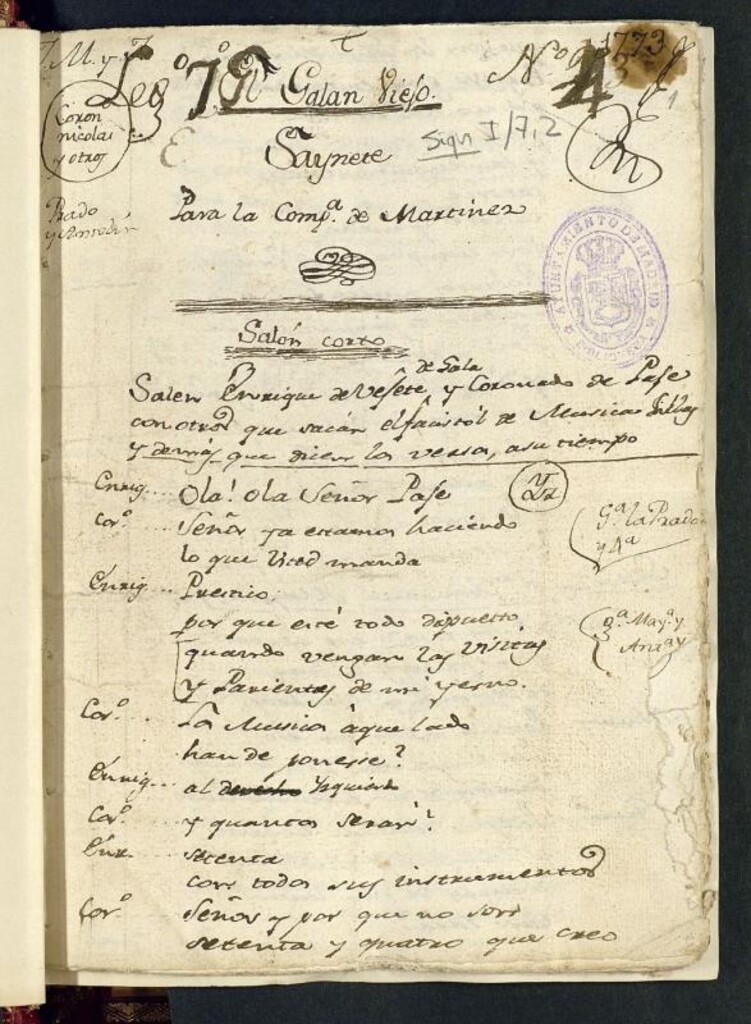 J. M. y J.
Leg.º 7.º
Nº 4
1773
1
Galan Viejo.
Coron
nicolas
y otros
Saynete
Sign I/7,2
Prado
Para la Comp.ª de Martinez
AYUNTAMIENTO DE MADRID
BIBLIOTECA
Salón corto
Salen Enrique de Vejete de Gala y Coronado de Paje
con otros que sacan el facistol de Musica Sillas
y demás que dicen los versos, a su tiempo
Enriq... Ola! Ola Señor Paje
Cor.º Señor ya estamos haciendo
lo que Usted manda
G.ª la Prado
y 4.ª
Enriq... Presttio
por que esté todo dispuesto
quando vengan las visitas
y Parientes de mi yerno.
Cor.º La Musica à que lado
han de ponerse?
Enriq... al derecho Ysquierdo
Cor.º y quantos seran?
Enr. setenta
con todos sus instrumentos
Cor.º Señor y por que no son
setenta y quatro que creo